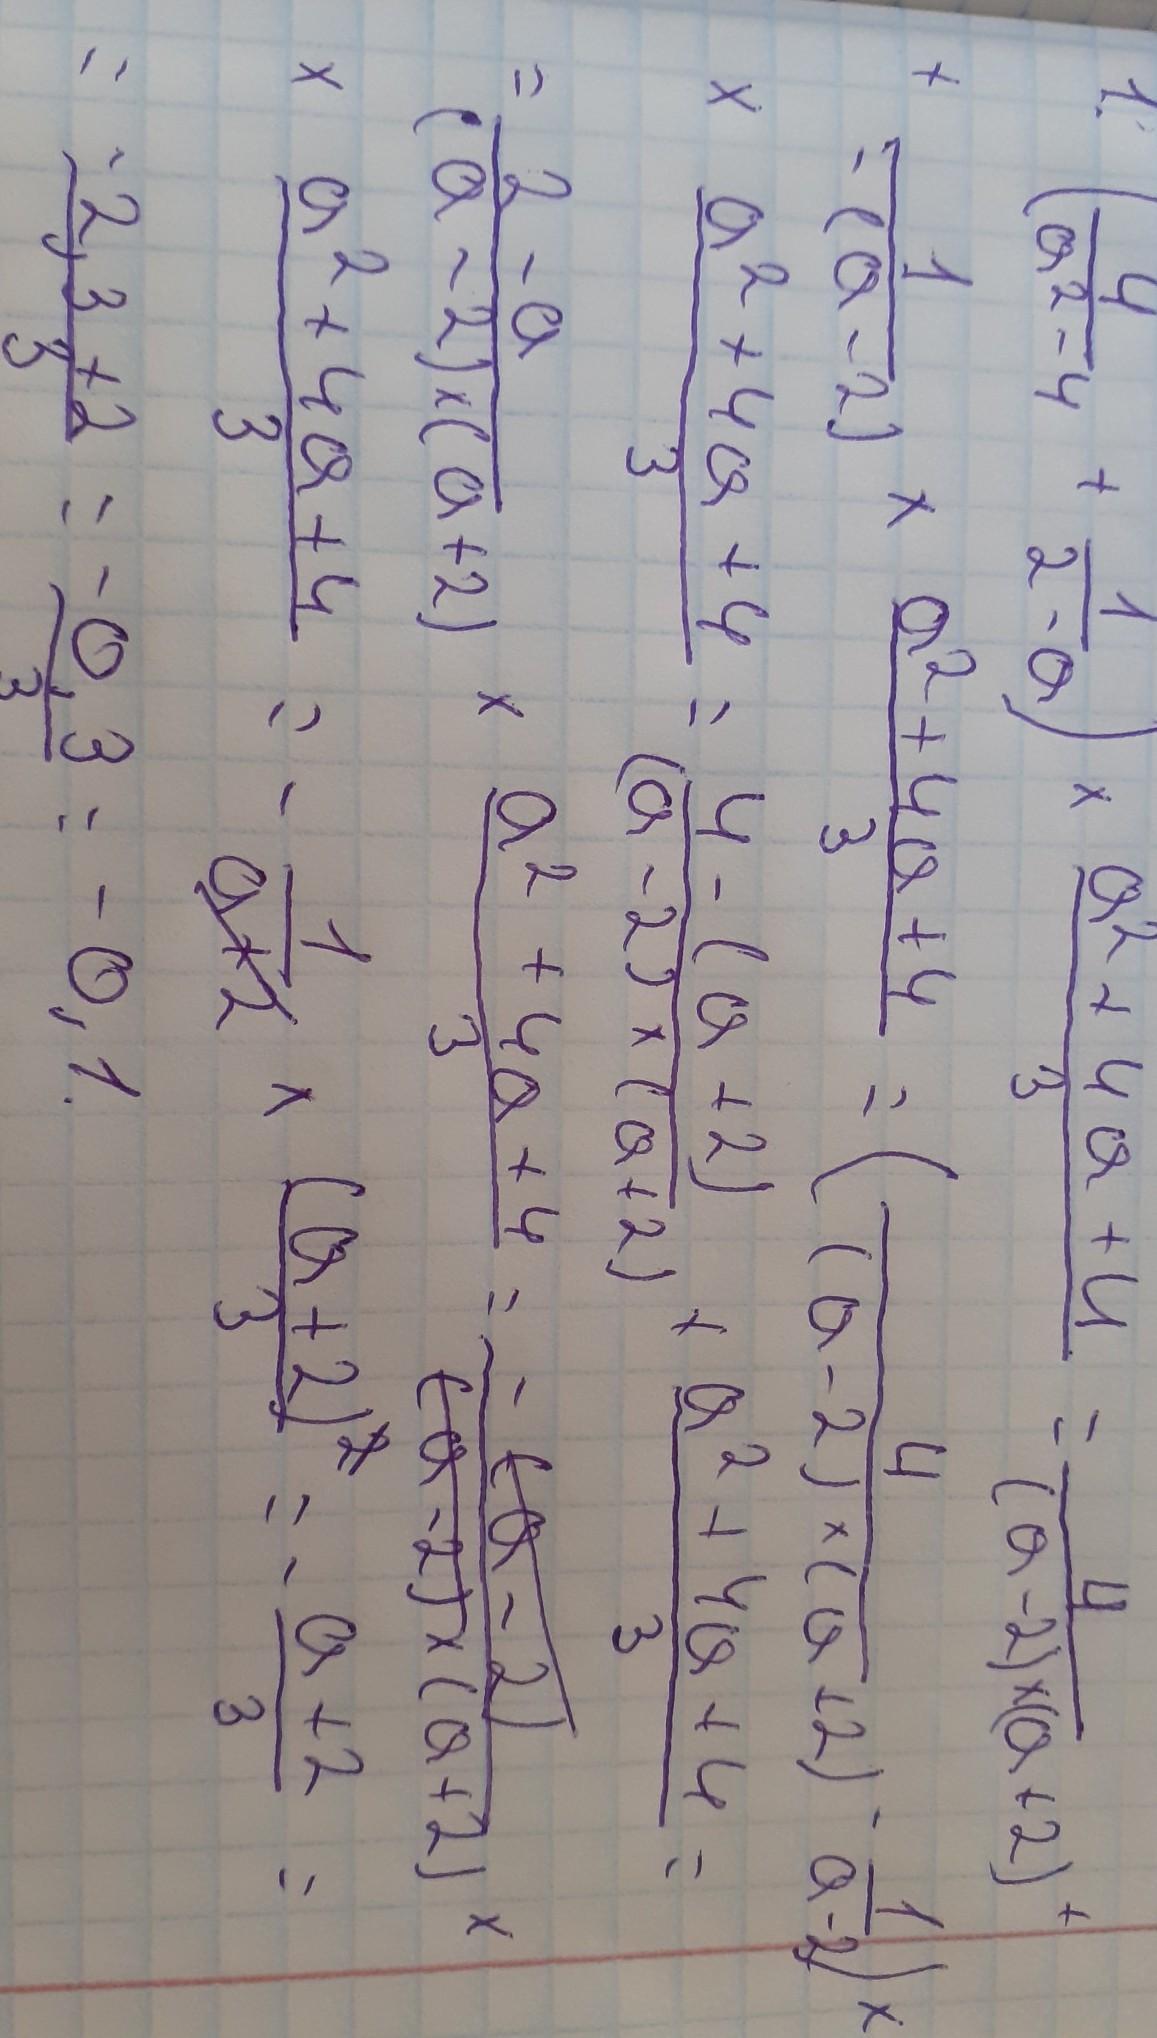 1. (4/(a² - 4) + 1/(2 - a)) × (a² + 4a + 4)/3 = 4/((a - 2) × (a + 2)) +
+ 1/(-(a - 2)) × (a² + 4a + 4)/3 = (4/((a - 2) × (a + 2)) - 1/(a - 2)) ×
× (a² + 4a + 4)/3 = (4 - (a + 2))/((a - 2) × (a + 2)) × (a² + 4a + 4)/3 =
= (2 - a)/((a - 2) × (a + 2)) × (a² + 4a + 4)/3 = (-(a - 2))/((a - 2) × (a + 2)) ×
× (a² + 4a + 4)/3 = - 1/(a + 2) × (a + 2)²/3 = - (a + 2)/3 =
= - (-2,3 + 2)/3 = - 0,3/3 = - 0,1.